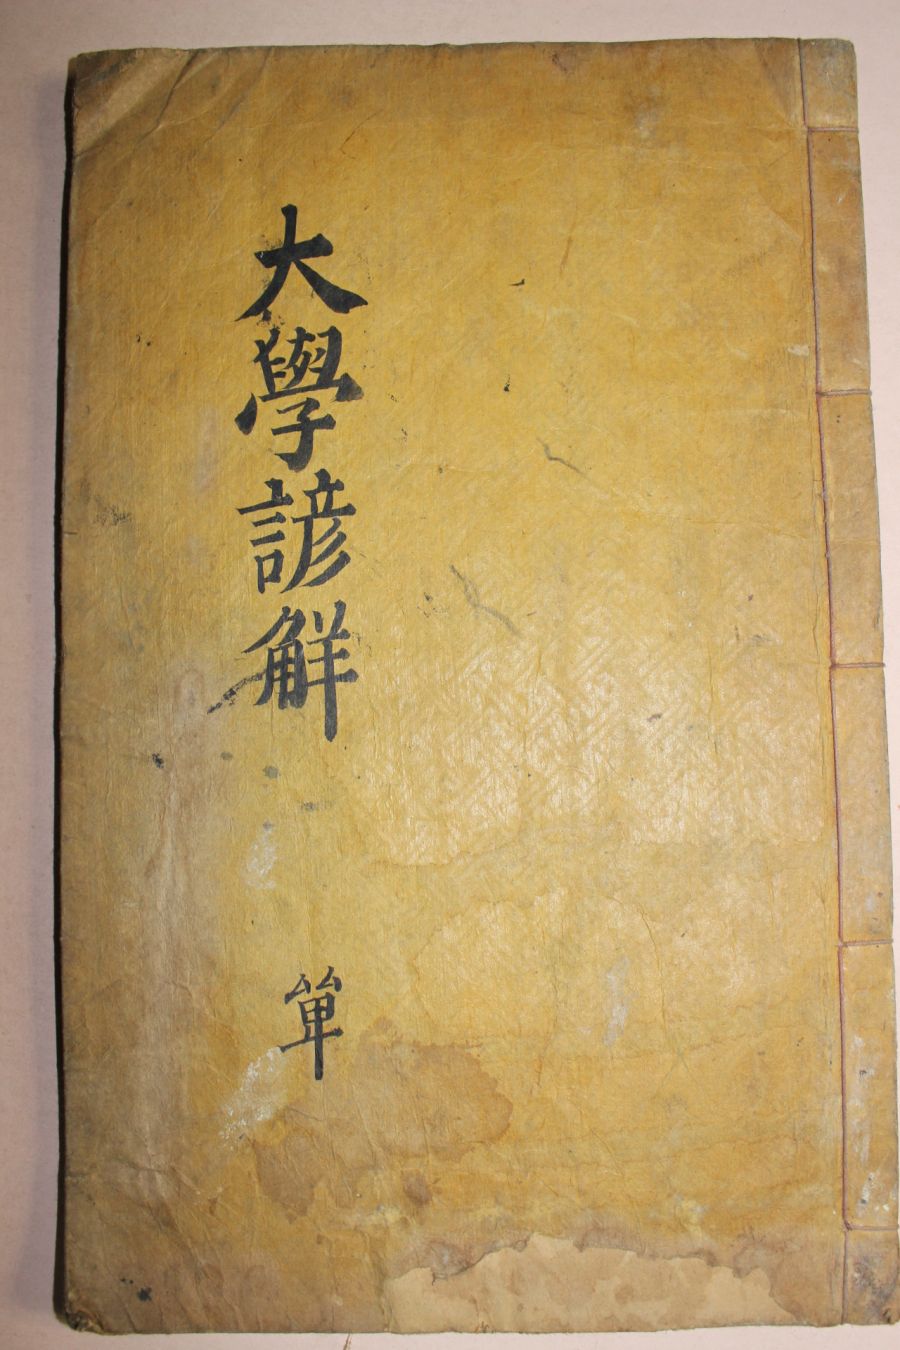 大學諺解
單